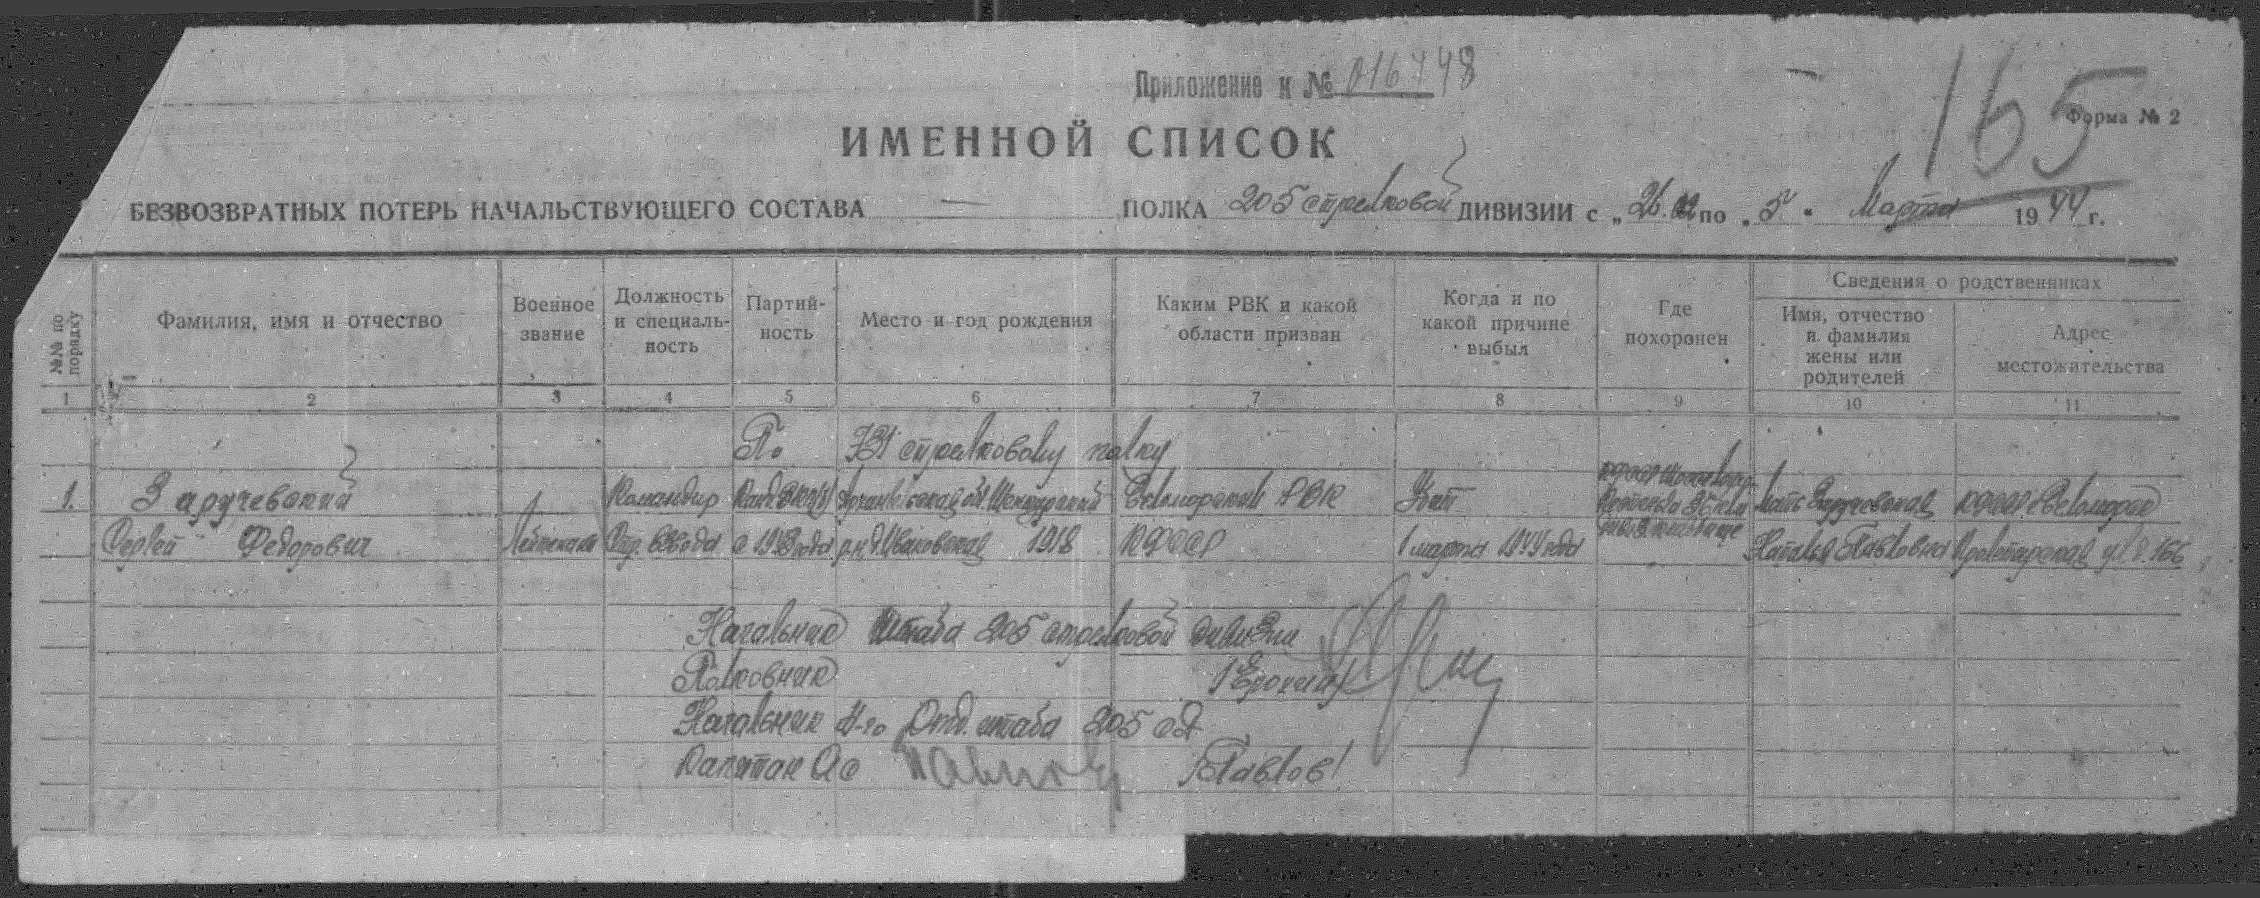 Приложение к № 016748
165
Форма № 2
ИМЕННОЙ СПИСОК
БЕЗВОЗВРАТНЫХ ПОТЕРЬ НАЧАЛЬСТВУЮЩЕГО СОСТАВА — ПОЛКА 205 стрелковой ДИВИЗИИ с „26.02 по „5" Марта 1944 г.
№№ по порядку
Фамилия, имя и отчество
Военное звание
Должность и специальность
Партийность
Место и год рождения
Каким РВК и какой области призван
Когда и по какой причине выбыл
Где похоронен
Сведения о родственниках
Имя, отчество и фамилия жены или родителей
Адрес местожительства
1 2 3 4 5 6 7 8 9 10 11
По 731 стрелковому полку
1. Заручевский Командир Канд. ВКП(б) Архангельская обл. Шенкурский Беломорским РВК Убит КФССР Мать Заручевская КФССР г. Беломорск
Сергей Федорович Лейтенант Стр. взвода с 1943 года р-н д. 1918 КФССР 1 марта 1944 года кладбище Наталья Павловна Пролетарская ул. д. 166
Начальник Штаба 205 стрелковой дивизии
Полковник /Ерохин/
Начальник 4-го Отд. штаба 205 сд
Капитан Ас Павлов /Павлов/